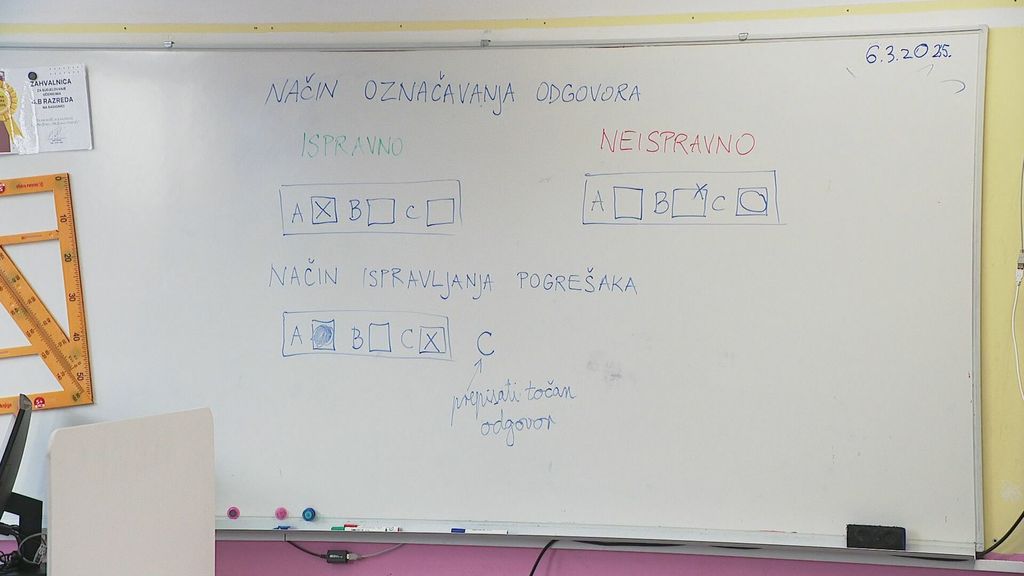 6.3.2025.
NAČIN OZNAČAVANJA ODGOVORA
ISPRAVNO
NEISPRAVNO
A X B C
A B X C
NAČIN ISPRAVLJANJA POGREŠAKA
A B C X C
prepisati točan
odgovor
ZAHVALNICA
4.B RAZREDA
0
10
20
30
40
50